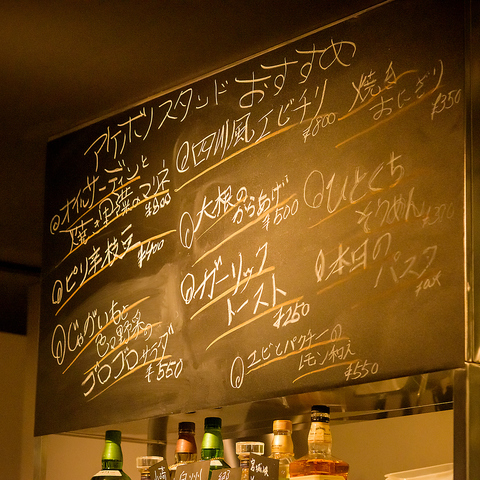 アケボノスタンドおすすめ
オイルサーディンと
焼き野菜のマリネ
¥800
ピリ辛枝豆
¥400
じゃがいもと
色々野菜の
ゴロゴロサラダ
¥550
四川風エビチリ
¥800
大根の
からあげ
¥500
ガーリック
トースト
¥250
エビとパクチーの
レモン和え
¥550
焼き
おにぎり
¥350
ひとくち
そうめん
本日の
パスタ